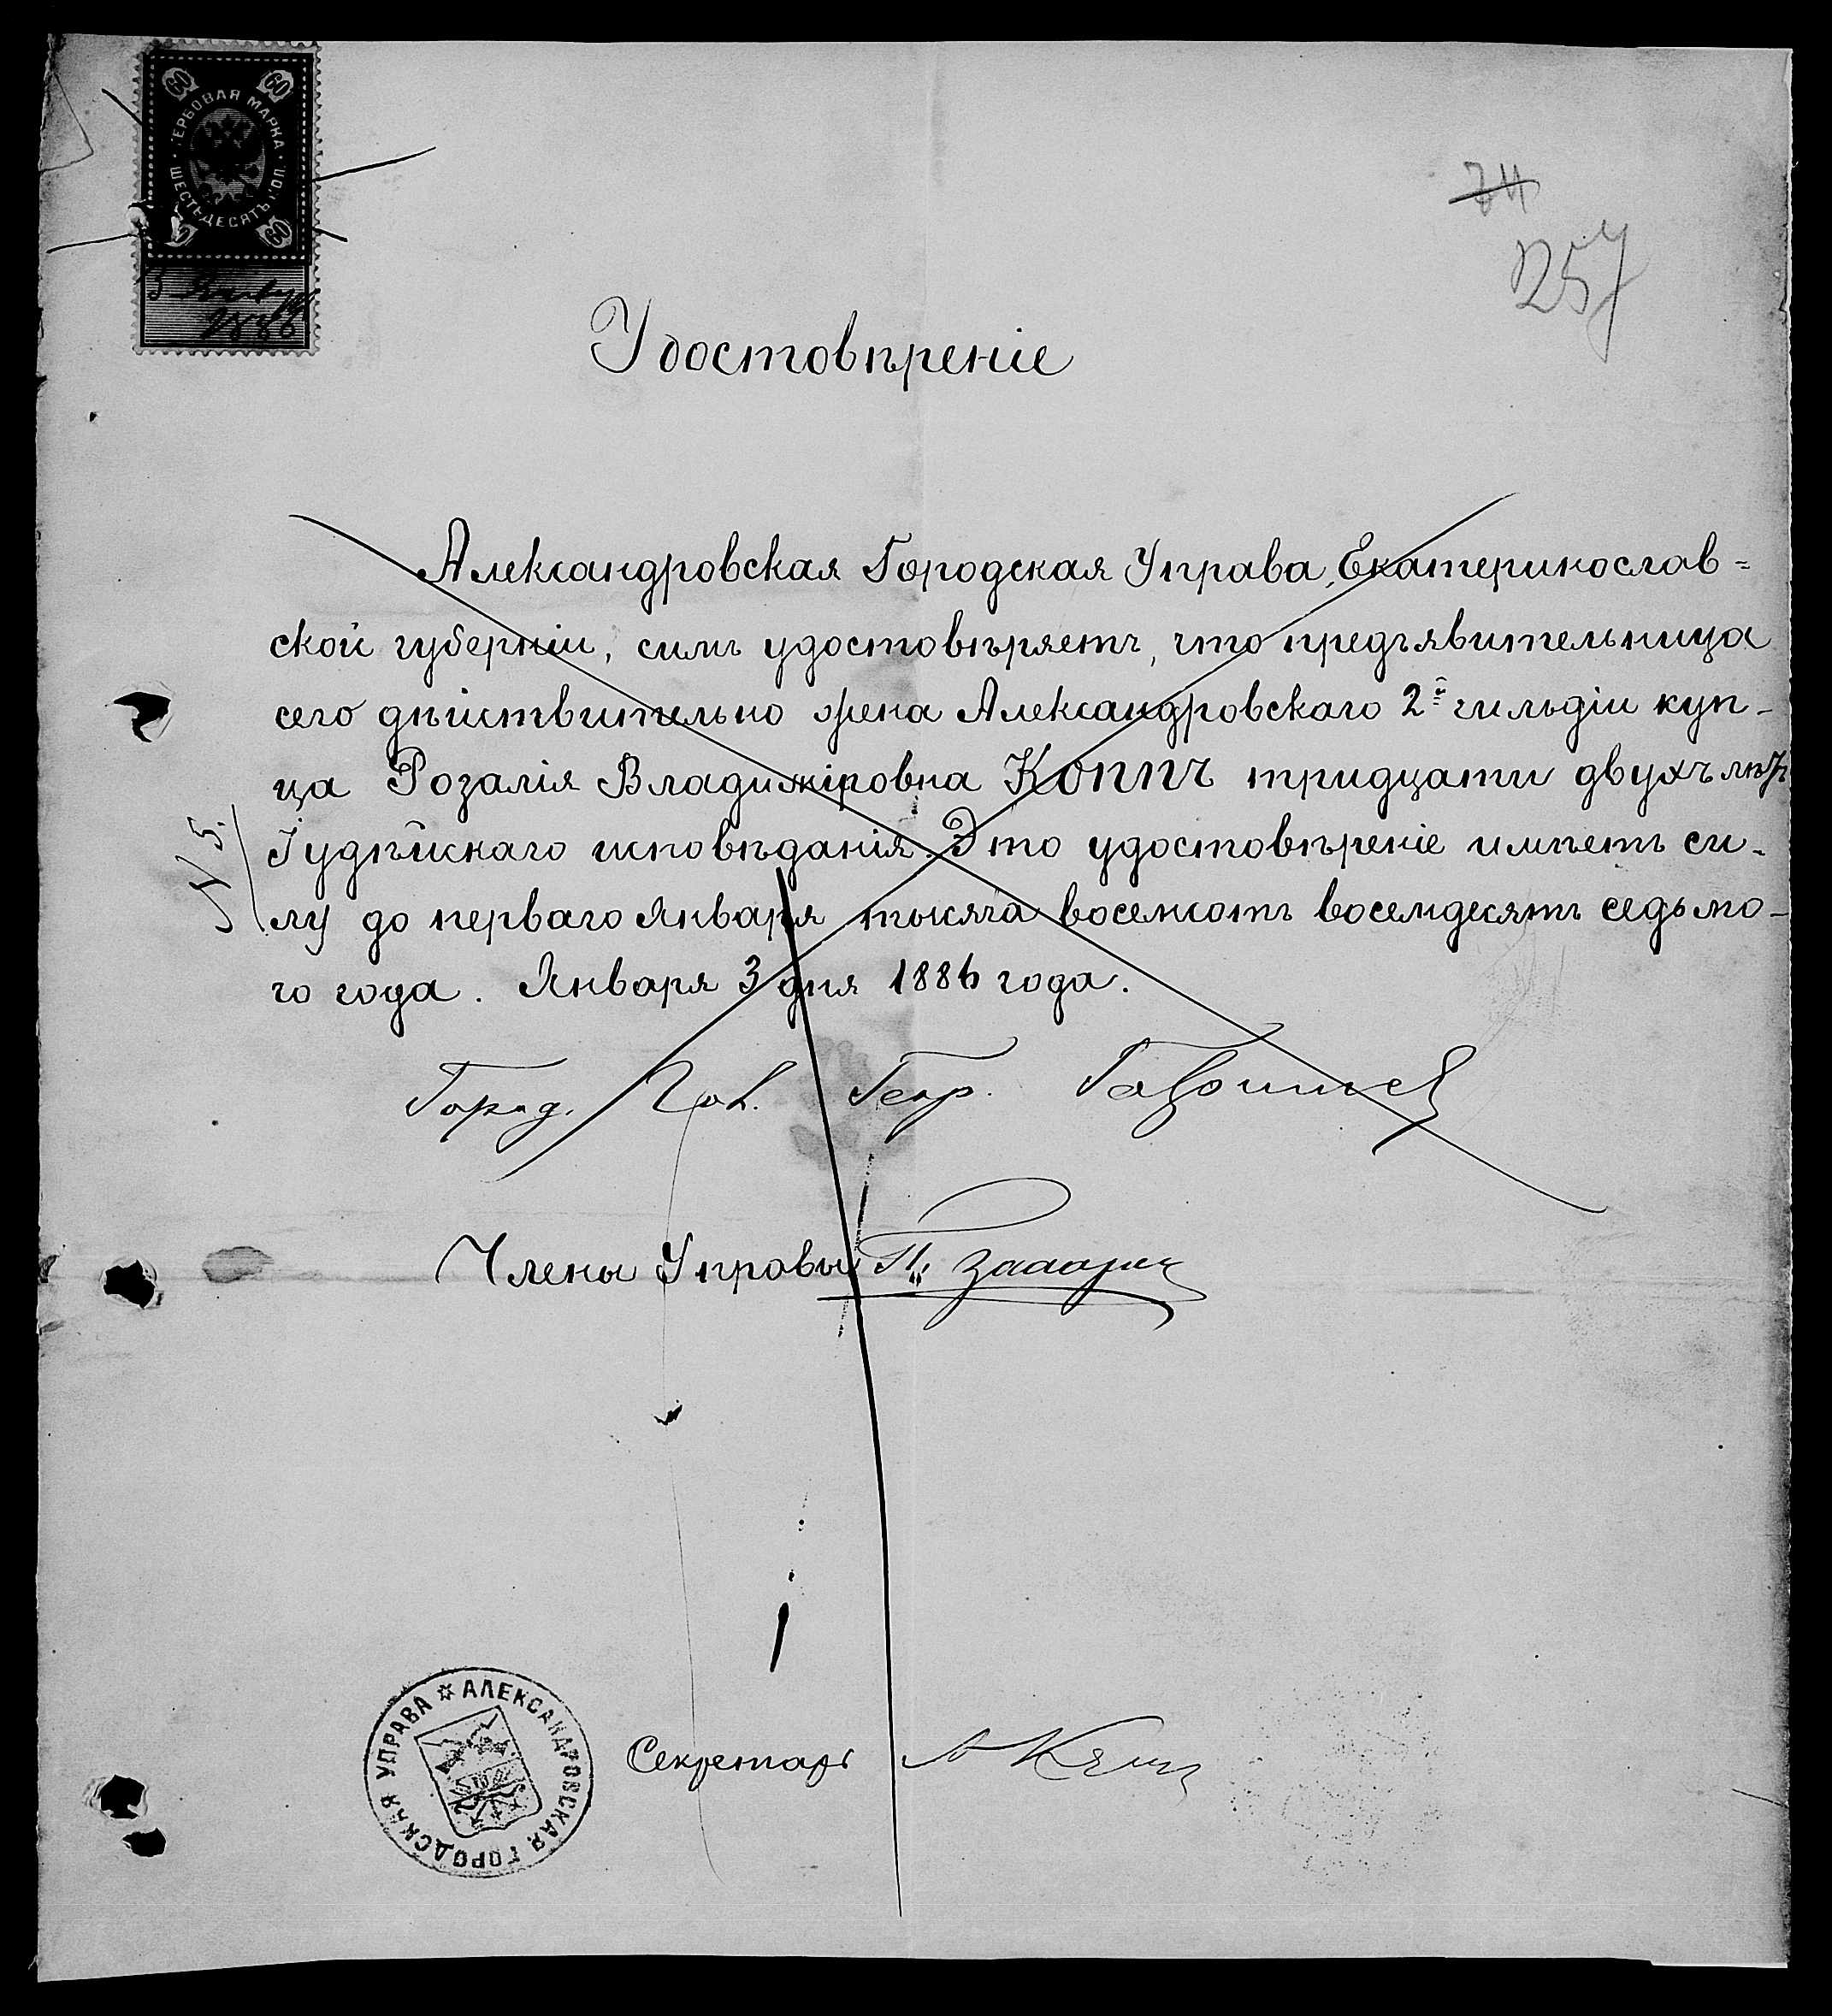 ГЕРБОВАЯ МАРКА
60 60
ШЕСТЬДЕСЯТЪ КОП.
60
3 Января
1886
74
257
Удостовѣреніе
Александровская Городская Управа, Екатеринослав=
ской губерніи, симъ удостовѣряетъ, что предъявительница
сего дѣйствительно жена Александровскаго 2й гильдіи куп-
ца Розалія Владиміровна Коппъ тридцати двухъ лѣтъ
Іудѣйскаго исповѣданія. Это удостовѣреніе имѣетъ си-
лу до перваго Января тысяча восемсотъ восемдесятъ седьмо-
го года. Января 3 дня 1886 года.
N 5.
Город. Гол. Геор.
Члены Управы
Секретарь
АЛЕКСАНДРОВСКАЯ ГОРОДСКАЯ УПРАВА